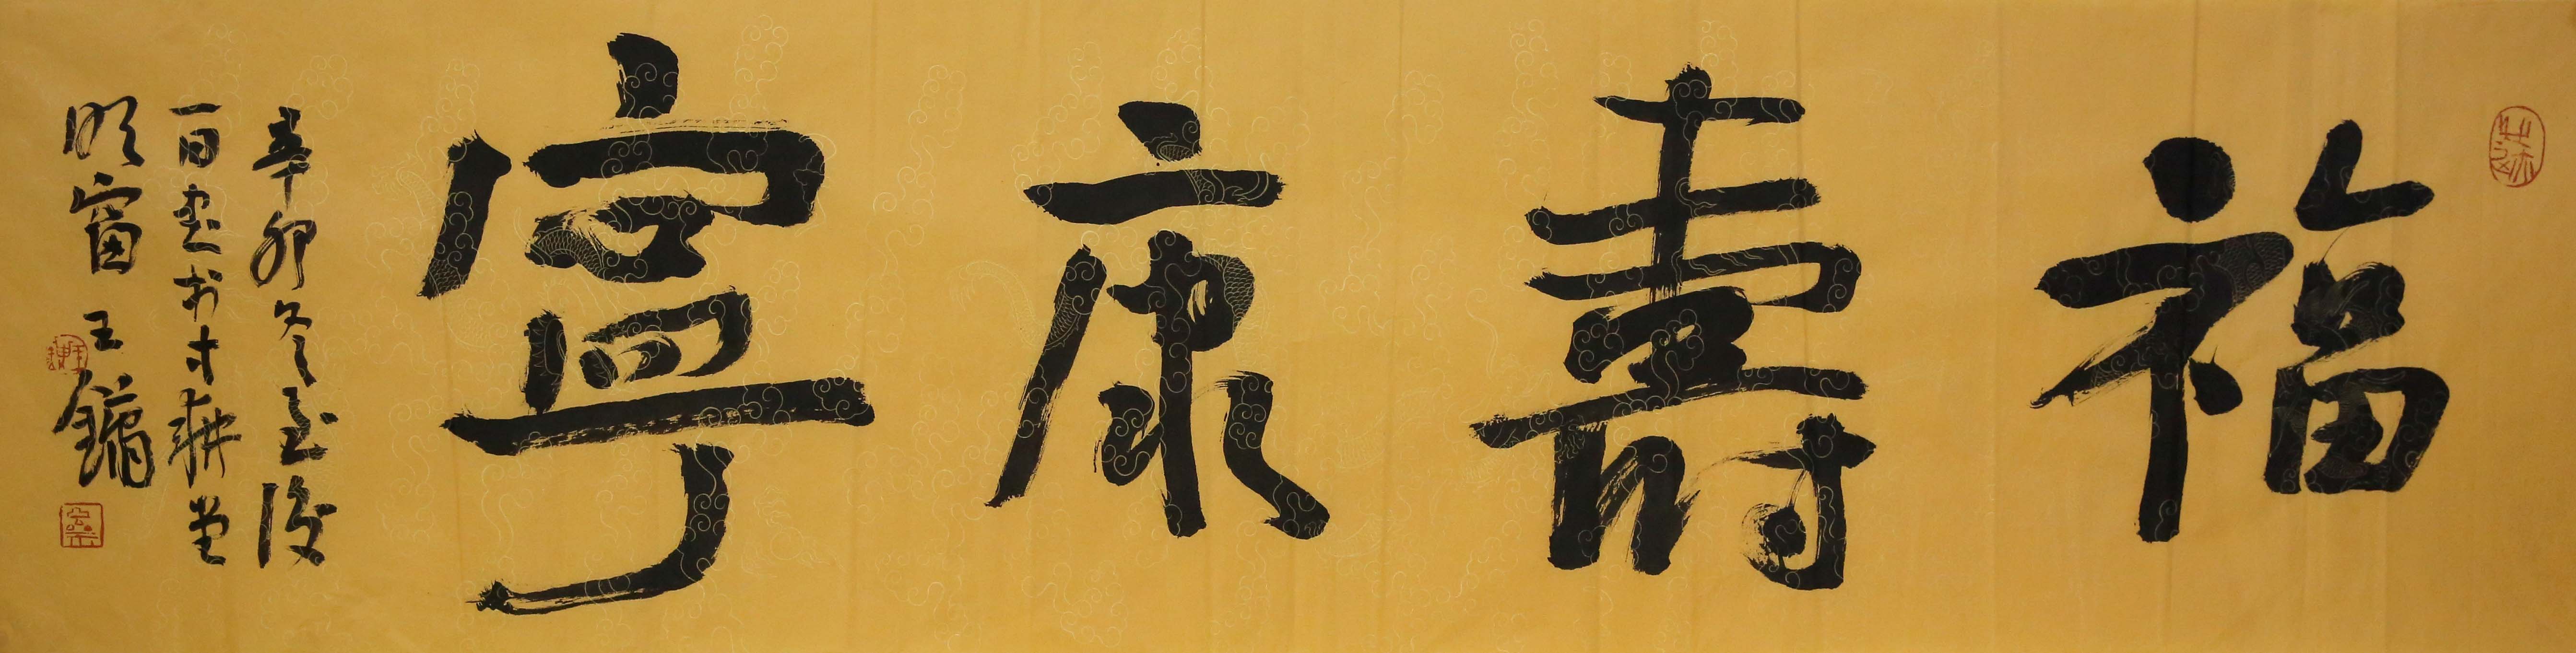 福壽康寧
辛卯冬至後
一日書於寸耕堂
明窗 王鏞